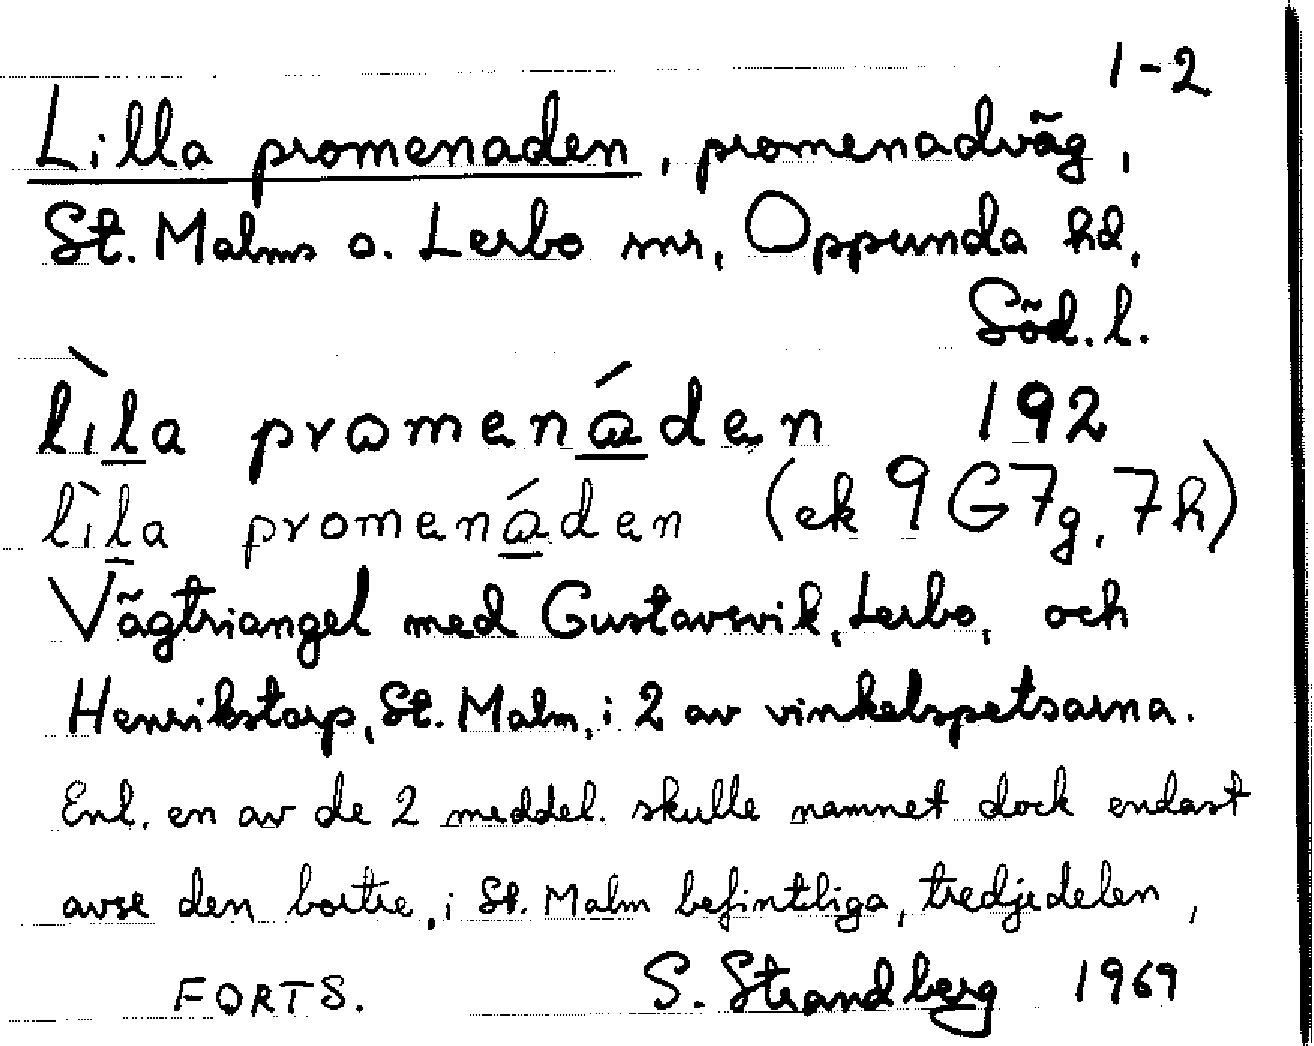 1-2
Lilla promenaden, promenadväg,
St. Malms o. Lerbo snr, Oppunda hd,
Söd. l.
lìla promenáden 192
lìla promenáden (ek 9G7g, 7h)
Vägtriangel med Gustavsvik, Lerbo, och
Henrikstorp, St. Malm, i 2 av vinkelspetsarna.
Enl. en av de 2 meddel. skulle namnet dock endast
avse den bortre, i St. Malm befintliga, tredjedelen,
FORTS. S. Strandberg 1969